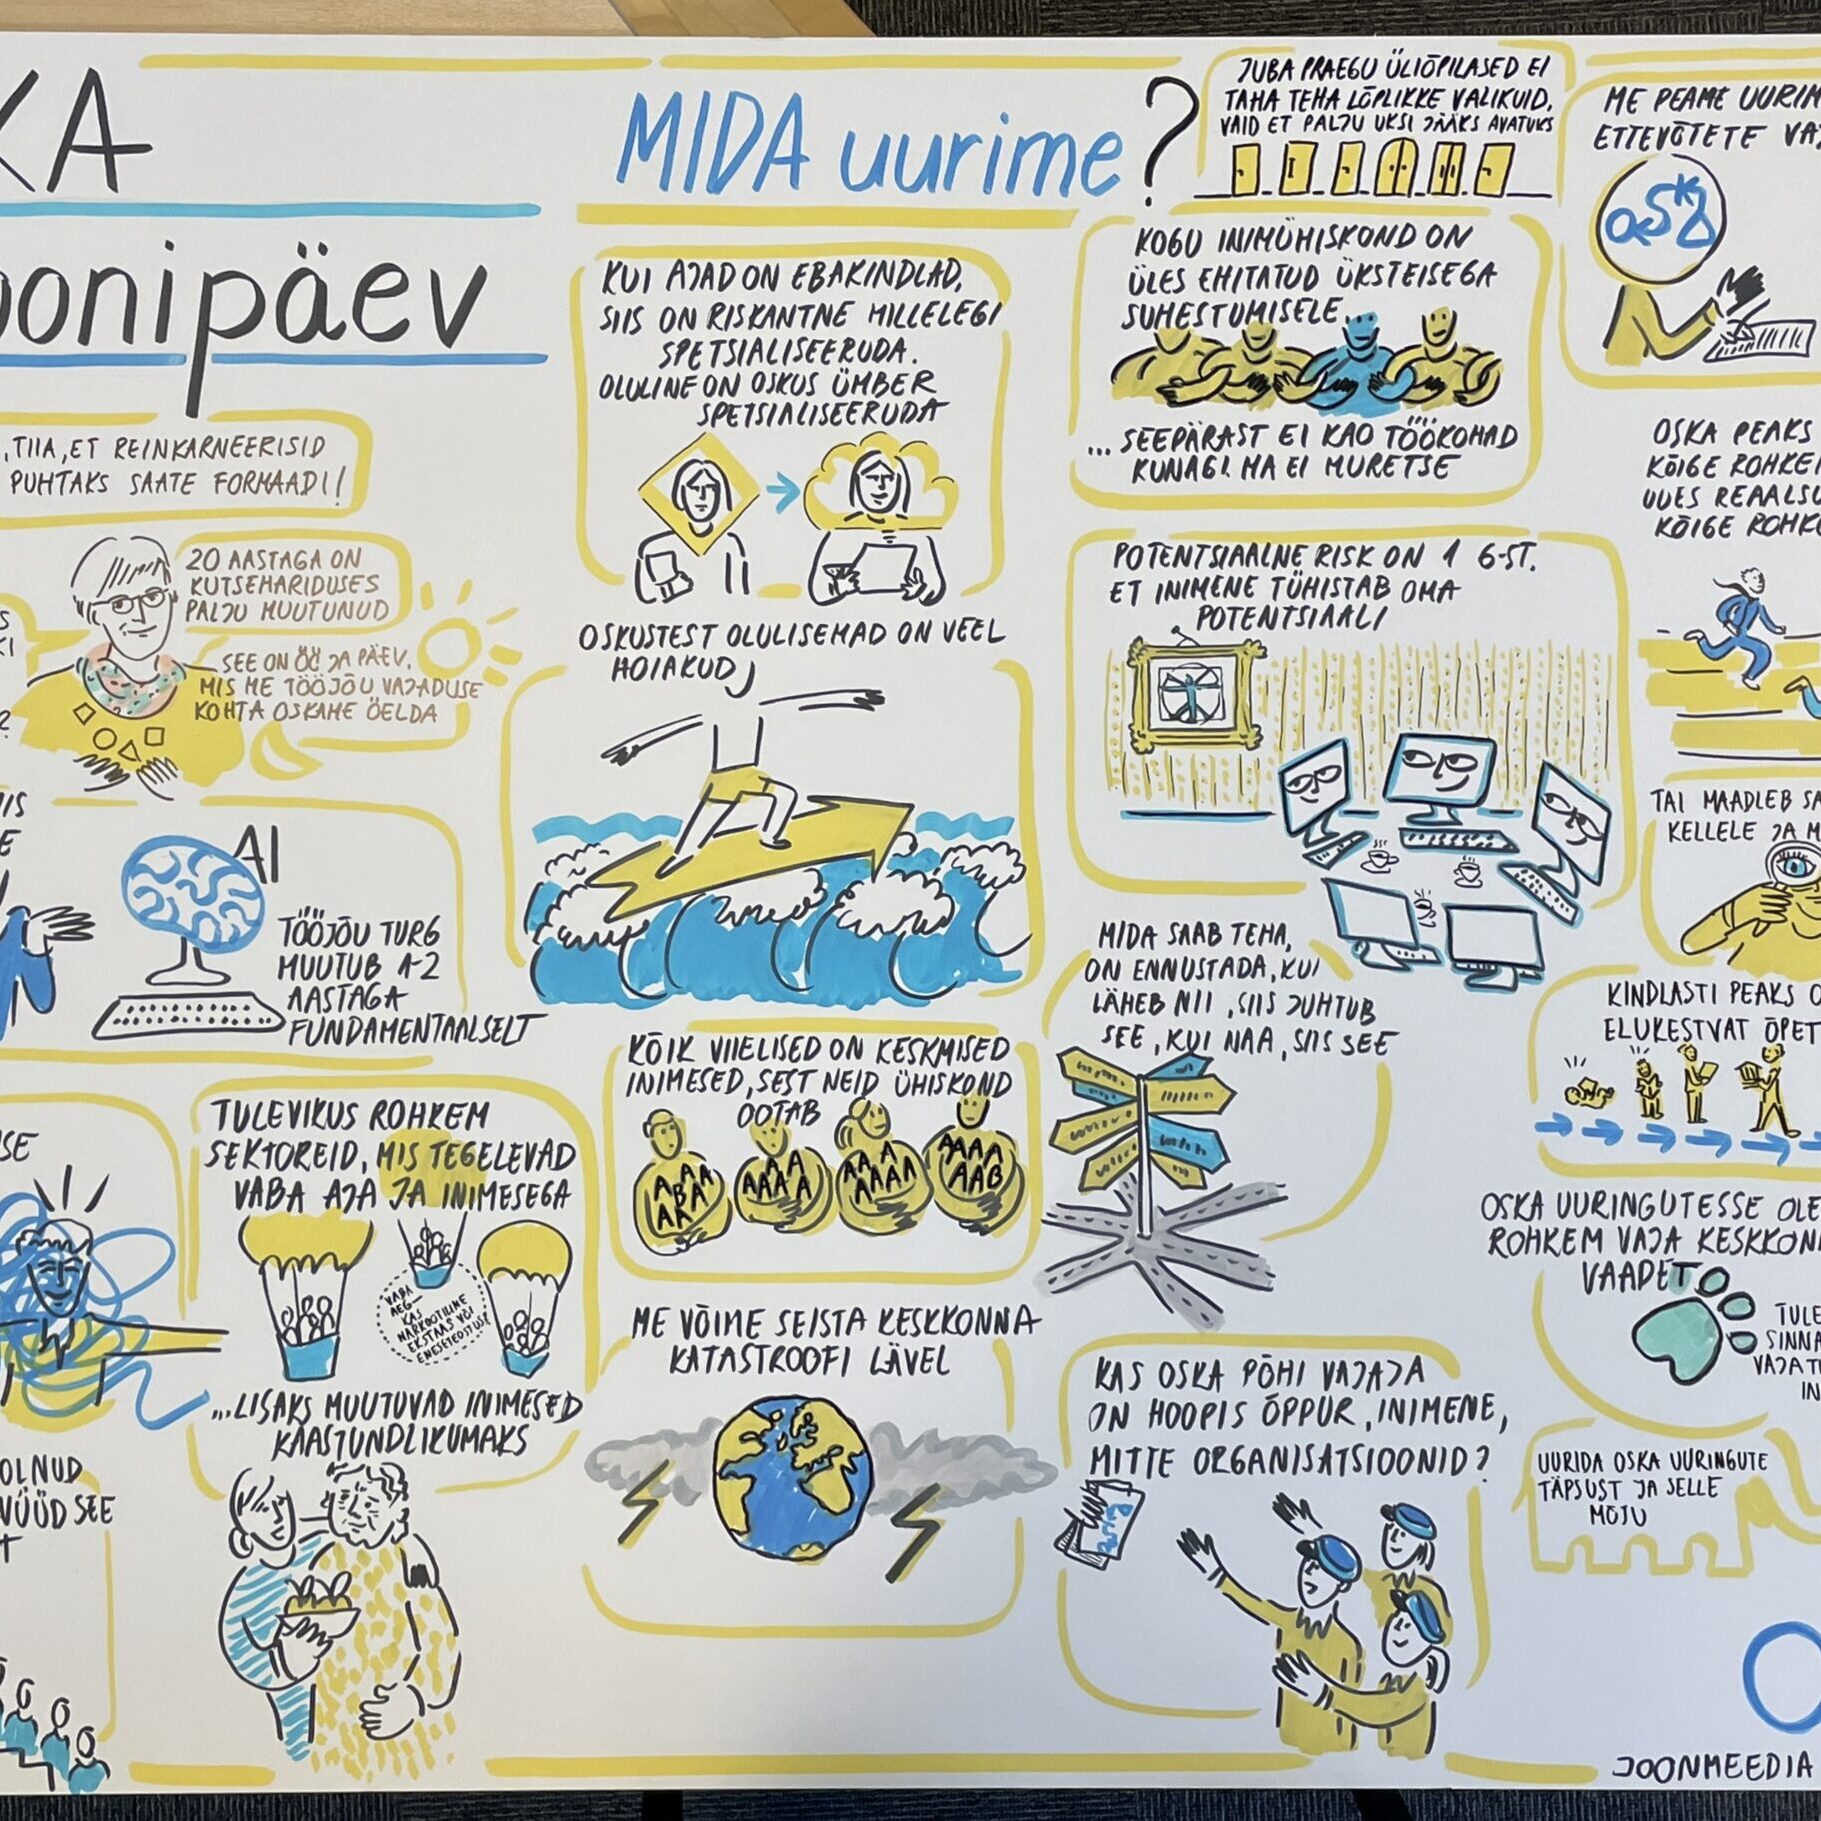 KA
oonipäev
, TIIA, ET REINKARNEERISID
PUHTAKS SAATE FORMAADI!
20 AASTAGA ON
KUTSEHARIDUSES
PALJU MUUTUNUD
SEE ON ÖÖ JA PÄEV,
MIS ME TÖÖJÕU VAJADUSE
KOHTA OSKAME ÖELDA
AI
TÖÖJÕU TURG
MUUTUB 1-2
AASTAGA
FUNDAMENTAALSELT
TULEVIKUS ROHKEM
SEKTOREID, MIS TEGELEVAD
VABA AJA JA INIMESEGA
VABA
AEG–
KAS
NARKOOTILINE
EKSTAAS VÕI
ENESETEOSTUS?
...LISAKS MUUTUVAD INIMESED
KAASTUNDLIKUMAKS
OLNUD
NÜÜD SEE
MIDA uurime?
KUI AJAD ON EBAKINDLAD,
SIIS ON RISKANTNE MILLELEGI
SPETSIALISEERUDA.
OLULINE ON OSKUS ÜMBER
SPETSIALISEERUDA
OSKUSTEST OLULISEMAD ON VEEL
HOIAKUD
KÕIK VIIELISED ON KESKMISED
INIMESED, SEST NEID ÜHISKOND
OOTAB
ME VÕIME SEISTA KESKKONNA
KATASTROOFI LÄVEL
JUBA PRAEGU ÜLIÕPILASED EI
TAHA TEHA LÕPLIKKE VALIKUID,
VAID ET PALJU UKSI JÄÄKS AVATUKS
KOGU INIMÜHISKOND ON
ÜLES EHITATUD ÜKSTEISEGA
SUHESTUMISELE...
...SEEPÄRAST EI KAO TÖÖKOHAD
KUNAGI. MA EI MURETSE
POTENTSIAALNE RISK ON 1 6-ST.
ET INIMENE TÜHISTAB OMA
POTENTSIAALI
MIDA SAAB TEHA,
ON ENNUSTADA, KUI
LÄHEB NII, SIIS JUHTUB
SEE, KUI NAA, SIIS SEE
KAS OSKA PÕHI VAJAJA
ON HOOPIS ÕPPUR, INIMENE,
MITTE ORGANISATSIOONID?
ME PEAME UURIM
ETTEVÕTETE VAJ
OSKA
OSKA PEAKS
KÕIGE ROHKEM
UUES REAALSU
KÕIGE ROHKE
TAI MAADLEB SA
KELLELE JA M
KINDLASTI PEAKS O
ELUKESTVAT ÕPET
OSKA UURINGUTESSE OLE
ROHKEM VAJA KESKKONN
VAADET
TULE
SINNA
VAJAT
IN
UURIDA OSKA UURINGUTE
TÄPSUST JA SELLE
MÕJU
JOONMEEDIA